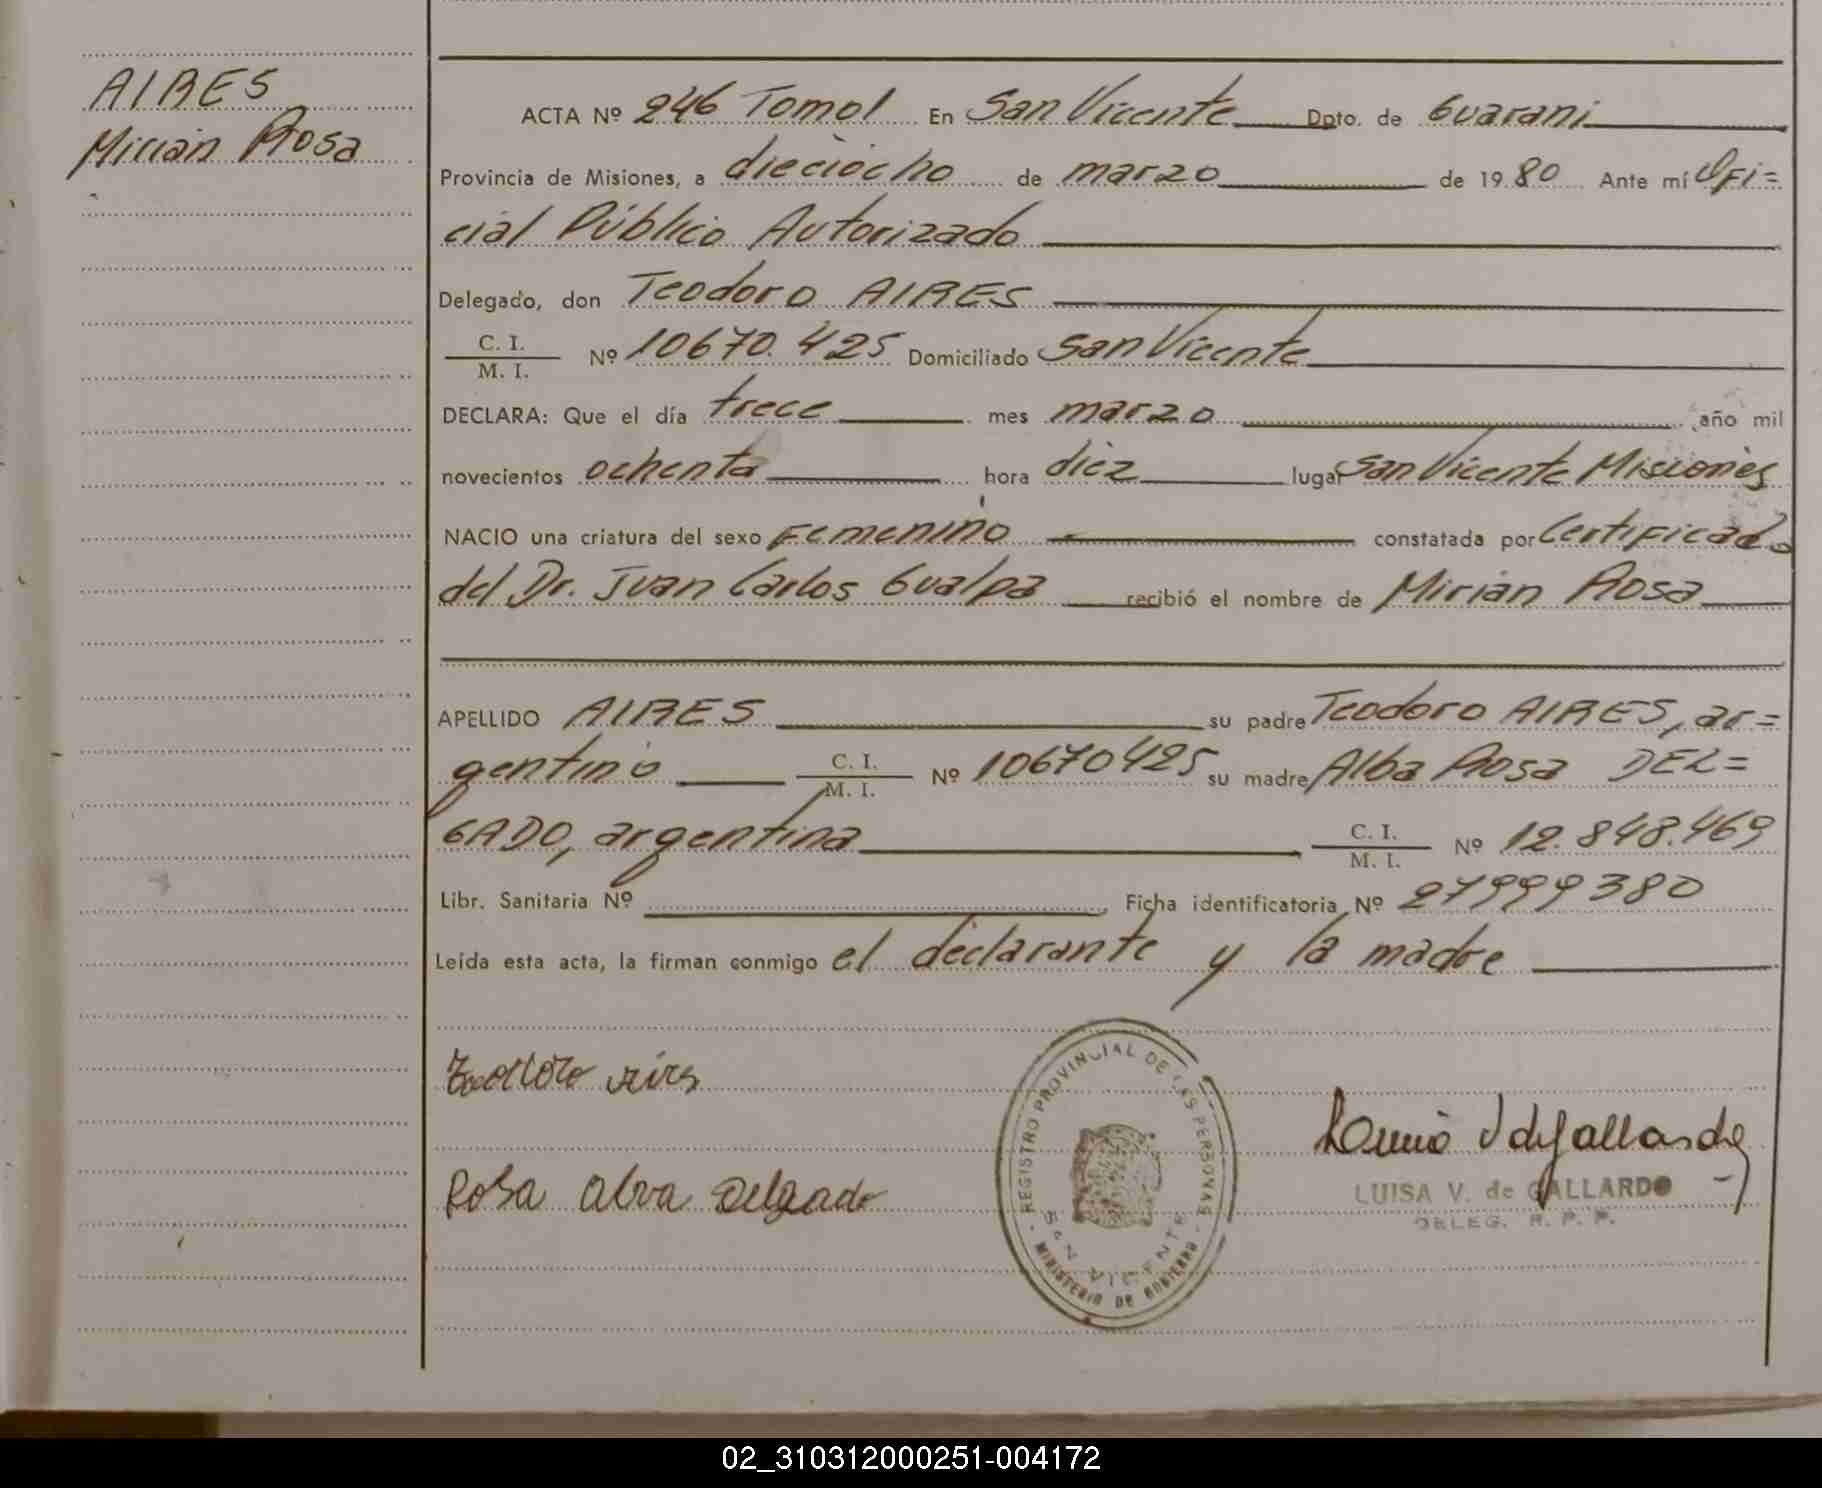 AIRES
Mirián Rosa
ACTA Nº 246 Tomo I En San Vicente Dpto. de Guarani
Provincia de Misiones, a dieciocho de marzo de 1980 Ante mí Ofi=
cial Público Autorizado
Delegado, don Teodoro AIRES
C. I.
M. I. Nº 10670.425 Domiciliado San Vicente
DECLARA: Que el día trece mes marzo año mil
novecientos ochenta hora diez lugar San Vicente Misiones
NACIO una criatura del sexo Femenino constatada por Certificado
del Dr. Juan Carlos Gualpa recibió el nombre de Mirián Rosa
APELLIDO AIRES su padre Teodoro AIRES, ar=
gentino C. I. M. I. Nº 10670425 su madre Alba Rosa DEL=
GADO, argentina C. I. M. I. Nº 12.848.469
Libr. Sanitaria Nº Ficha identificatoria Nº 27999380
Leída esta acta, la firman conmigo el declarante y la madre
Rosa Alva Delgado
REGISTRO PROVINCIAL DE LAS PERSONAS
SAN VICENTE
MINISTERIO DE GOBIERNO
LUISA V. de GALLARDO
DELEG. R. P. P.
02_310312000251-004172